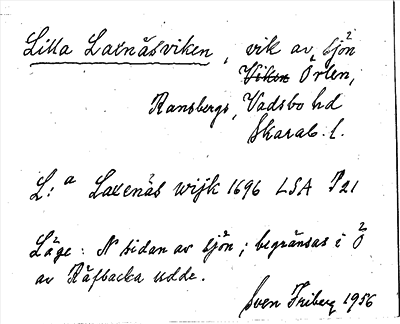 Lilla Laxnäsviken, vik av sjön
Viken Örlen,
Ransbergs, Vadsbo hd
Skarab. l.
L:a Laxenäs wijk 1696 LSA P21
Läge: N sidan av sjön; begränsas i Ö
av Räfbacka udde.
Sven Friberg 1956